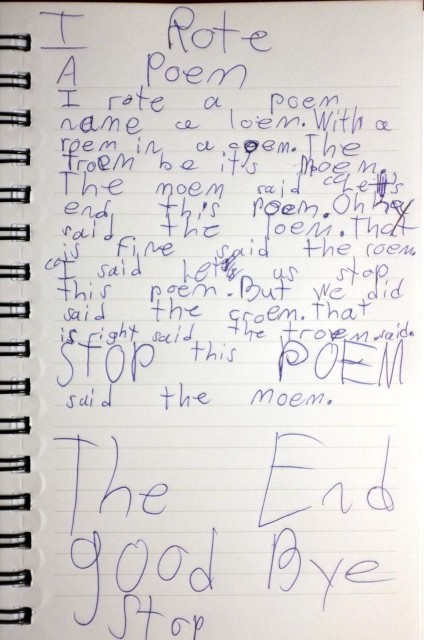 I Rote
A Poem
I rote a poem
name a loem. With a
roem in a coem. The
troem be it's moem.
The moem said "let's
end this poem. Oh hey
said the loem. That
is fine said the roem.
"I said let us stop
this poem. But we did
said the croem. that
is right said the troem said.
STOP this POEM
said the moem.
The End
good Bye
Stop